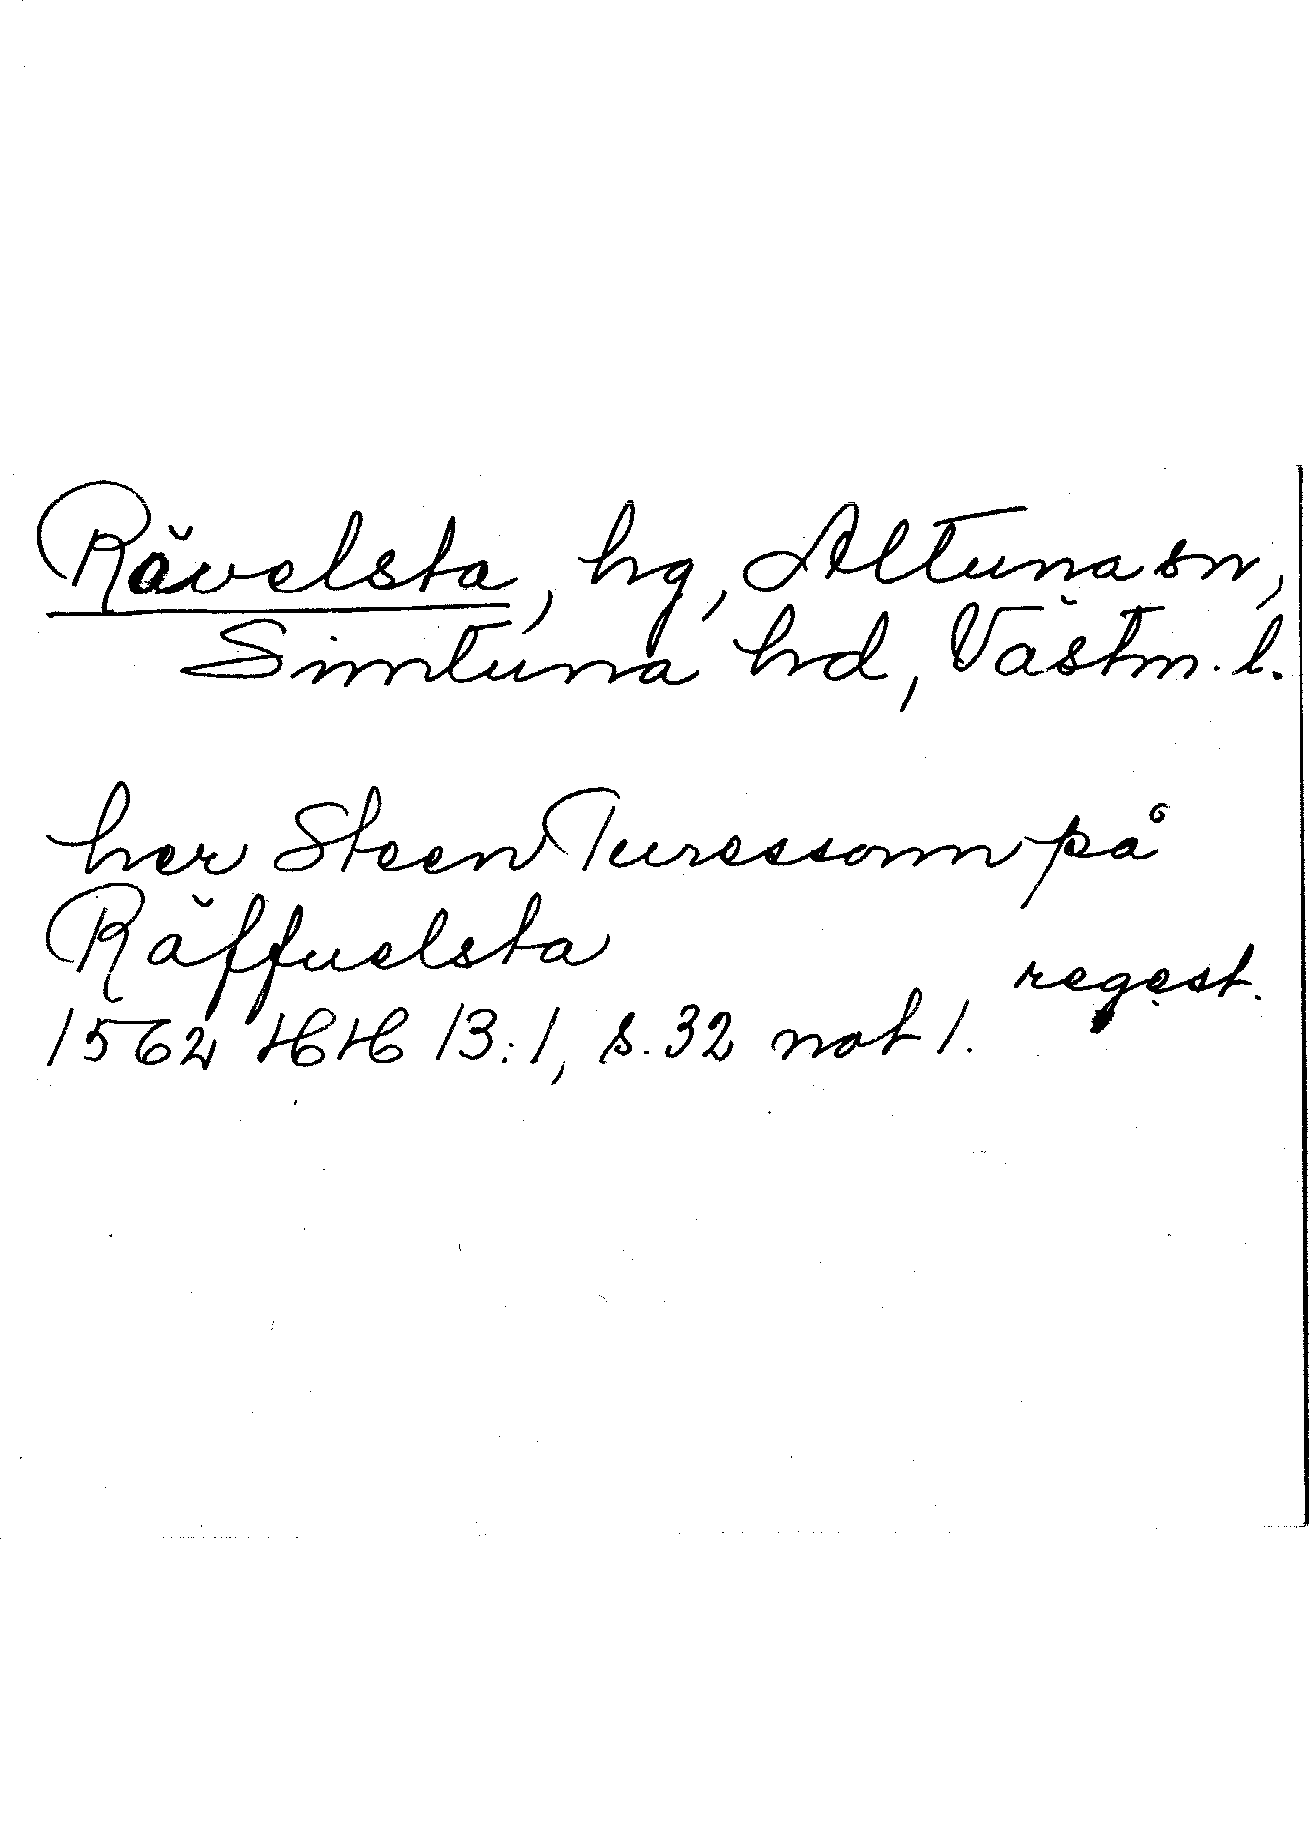 Rävelsta, hg, Altuna sn,
Simtuna hd, Västm. l.
her Steen Turessonn på
Räffuelsta
regest.
1562 HH 13:1, s. 32 not 1.